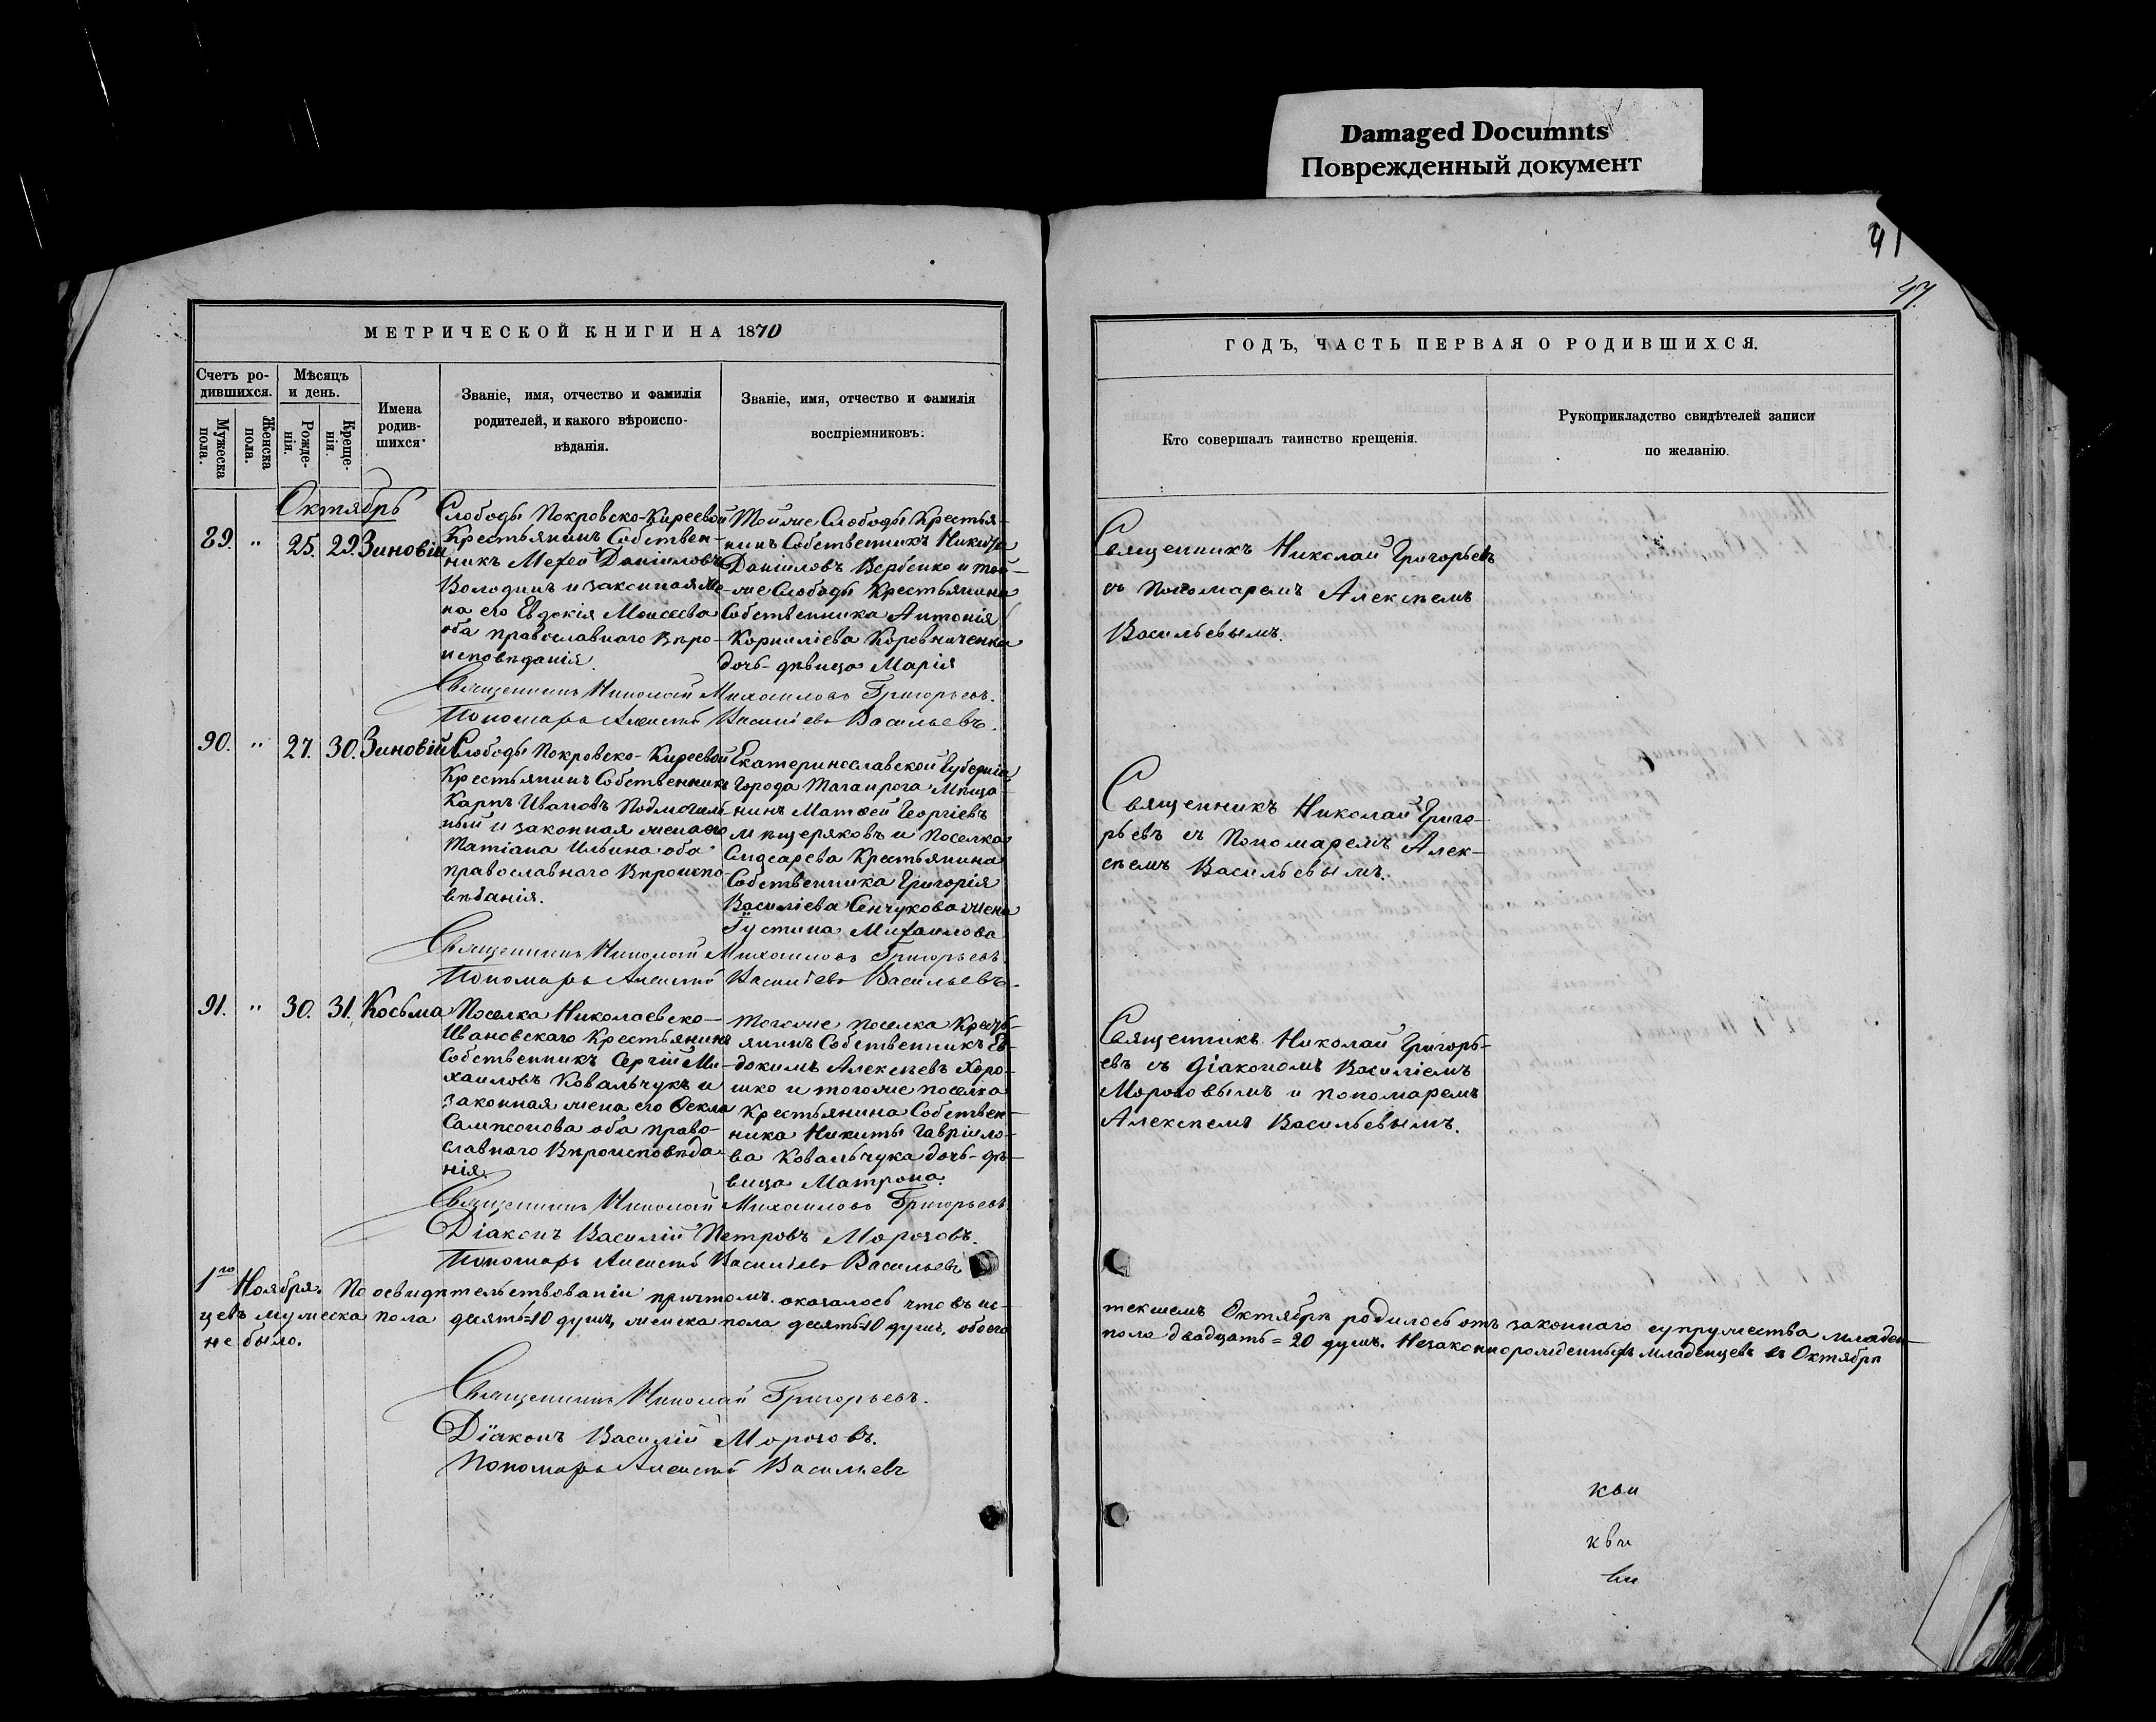 Damaged Documnts
Поврежденный документ
41
47.
МЕТРИЧЕСКОЙ КНИГИ НА 1870
Счетъ ро-
дившихся.
Мужеска
пола.
Женска
пола.
Мѣсяцъ
и день.
Рожде-
нія.
Креще-
нія.
Имена
родив-
шихся.
Званіе, имя, отчество и фамилія
родителей, и какого вѣроиспо-
вѣданія.
Званіе, имя, отчество и фамилія
воспріемниковъ.
Октябрь
89. " 25. 29. Зиновій
Слободы Покровско-Киреевой
Крестьянинъ Собствен-
никъ Даніиловъ
Володинъ и законная же-
на его Евдокія Моисеева
оба православнаго Вѣро-
исповѣданія.
Тойже Слободы Крестья-
нинъ Собственникъ Никита
Даніиловъ Вербенко и той-
же Слободы Крестьянина
Собственника Антонія
Корнилиева Коровниченка
дочь-дѣвица Марія
Священникъ Николай Михаиловъ Григорьевъ.
Пономарь Алексѣй Василіевъ Васильевъ.
90. " 27. 30. Зиновій
Слободы Покровско-Киреевой
Крестьянинъ Собственникъ
Карпъ Ивановъ Подмогиль-
ный и законная жена его
Татіана Ильина оба
православнаго Вѣроиспо-
вѣданія.
Екатеринославской Губерніи
Города Таганрога Мѣща-
нинъ Матѳей Георгіевъ
Мѣщеряковъ и Поселка
Крестьянина
Собственника Григорія
Василіева Сенчукова жена
Іустина Михаилова
Священникъ Николай Михаиловъ Григорьевъ.
Пономарь Алексѣй Василіевъ Васильевъ.
91. " 30. 31. Косьма
Поселка Николаевско-
Ивановскаго Крестьянинъ
Собственникъ Сергій Ми-
хаиловъ Ковальчукъ и
законная жена его Ѳекла
Сампсонова оба право-
славнаго Вѣроисповѣда-
нія.
Тогоже поселка Кресть-
янинъ Собственникъ Ев-
докимъ Алексѣевъ Хоро-
шко и тогоже поселка
Крестьянина Собствен-
ника Никиты Гавріило-
ва Ковальчука дочь-дѣ-
вица Матрона.
Священникъ Николай Михаиловъ Григорьевъ
Діаконъ Василій Петровъ Морозовъ.
Пономарь Алексѣй Василіевъ Васильевъ
1го Ноября. По освидѣтельствованіи причтомъ оказалось что въ ис-
цевъ мужеска пола десять=10 душъ, женска пола десять=10 душъ, обоего
не было.
Священникъ Николай Григорьевъ.
Діаконъ Василій Морозовъ.
Пономарь Алексѣй Васильевъ
ГОДЪ, ЧАСТЬ ПЕРВАЯ О РОДИВШИХСЯ.
Кто совершалъ таинство крещенія.
Рукоприкладство свидѣтелей записи
по желанію.
Священникъ Николай Григорьевъ
съ Пономаремъ Алексѣемъ
Васильевымъ.
Священникъ Николай Григо-
рьевъ съ Пономаремъ Алек-
сѣемъ Васильевымъ.
Священникъ Николай Григорь-
евъ съ Діакономъ Василіемъ
Морозовымъ и пономаремъ
Алексѣемъ Васильевымъ.
текшемъ Октябрѣ родилось отъ законнаго супружества младен-
пола двадцать=20 душъ. Незаконнорожденныхъ младенцевъ въ Октябрѣ